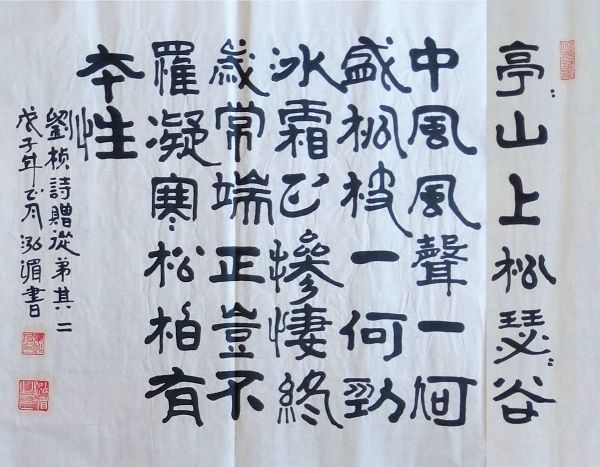 亭〻山上松瑟〻谷
中風風聲一何
盛松枝一何勁
冰霜正慘悽終
歲常端正豈不
罹凝寒松柏有
本性
劉楨詩贈從弟其二
戊子年正月泓湄書